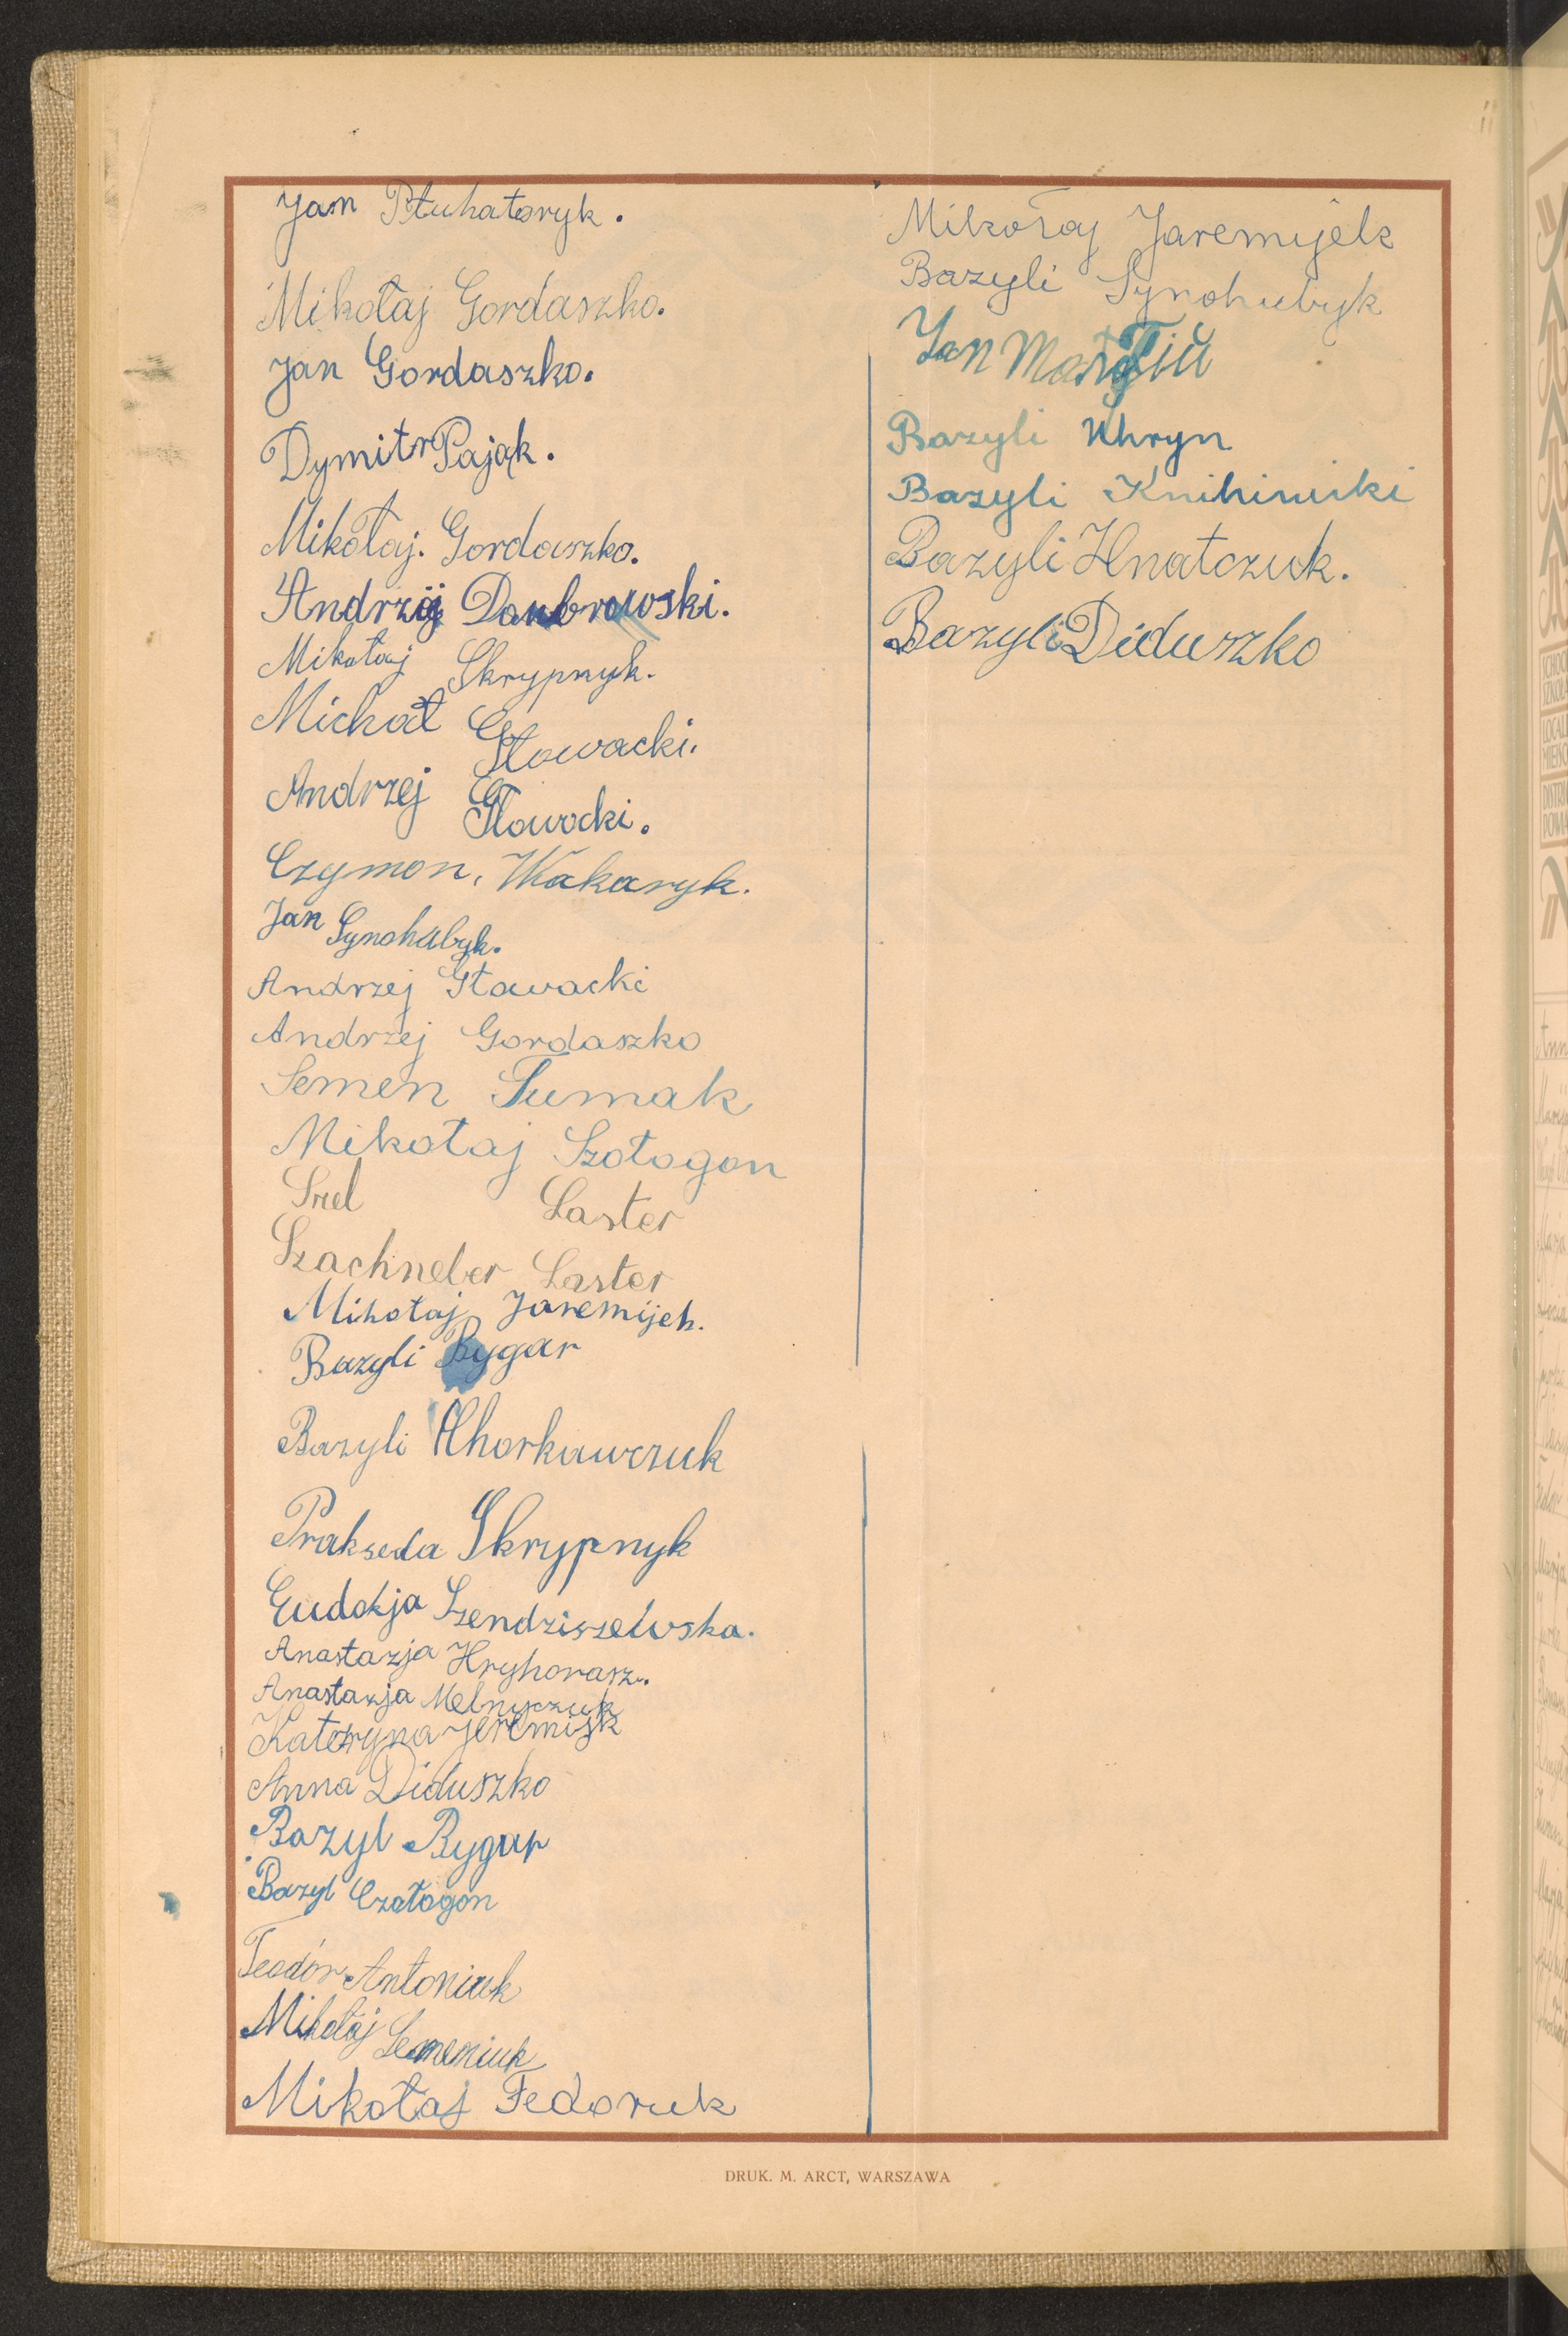 Jan Ptuhatoryk.
Mikołaj Gordaszko.
Jan Gordaszko.
Dymitr Pająk.
Mikołaj. Gordaszko.
Andrzij Daubrowski.
Mikołaj Skrypnyk.
Michał Głowacki.
Andrzej Głowocki.
Czymon, Wakaryk.
Jan Synohubyk.
Andrzej Gławacki
Andrzej Gordaszko
Semen Tumak
Mikołaj Szołogon
Srel Laster
Szachneber Laster
Mikołaj Jaremijek.
Bazyli Rygar
Bazyli Chorkawczuk
Prakseda Skrypnyk
Eudokja Szendziszewska.
Anastazja Hryhorasz.
Anastazja Melnyczuk
Kateryna Jeremijk
Anna Diduszko
Bazyl Rygar
Bazyl Czołogon
Teodór Antoniuk
Mikołaj Semeniuk
Mikołaj Fedoruk
Mikołaj Jaremijek
Bazyli Synohubyk
Jan
Bazyli Uhryn
Bazyli Knihinicki
Bazyli Hnatczuk.
Bazyli Diduszko
DRUK. M. ARCT, WARSZAWA